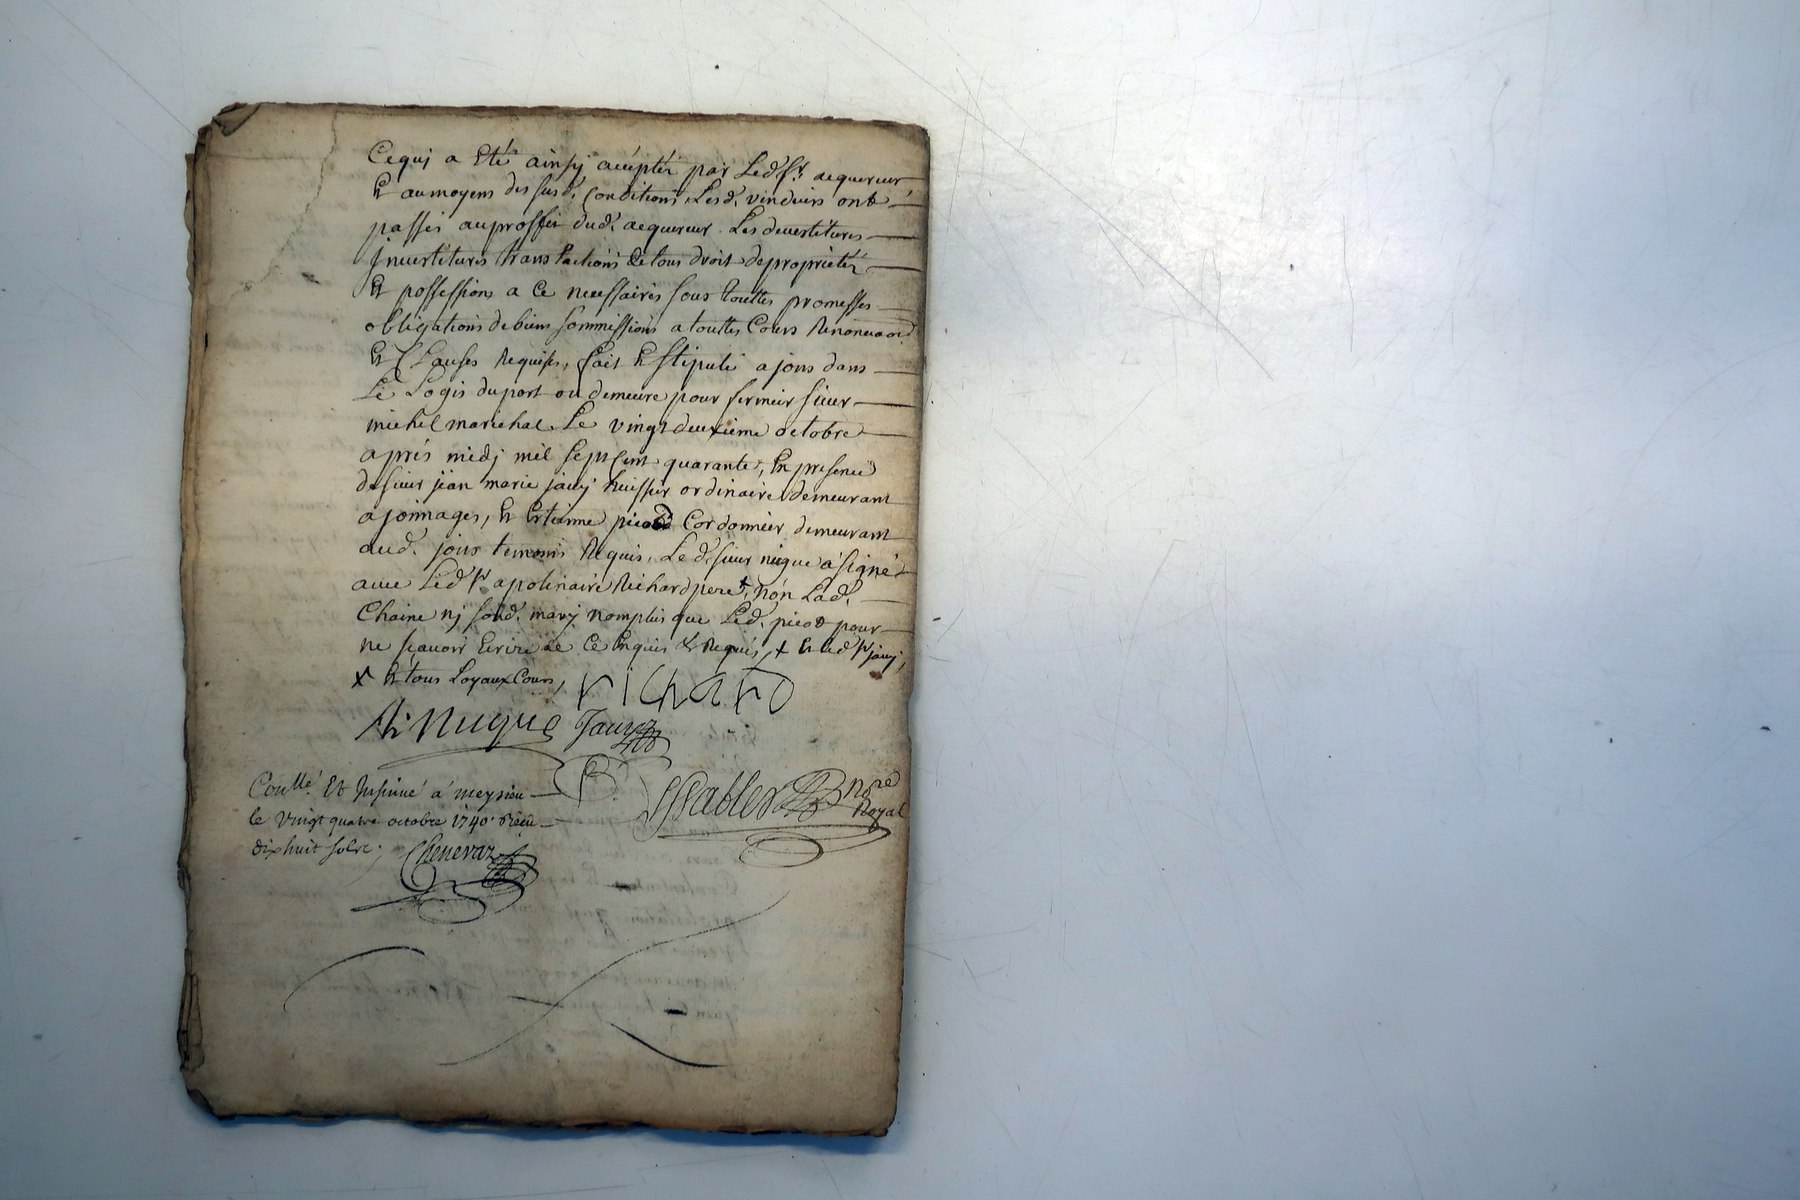 Cequj a Eté ainsy accépter par Led. Sr. acquereur
Et aumoyens des susd. Conditions, Lesd. vendeurs ont
passés auproffit dud. acquereur Les devestitures
Jnvestitures translactions de tous droit de proprietéz
Et possessions a Ce necessaires sous touttes promesses
obligations de biens sommissions a touttes Cours Renonciaons
Et Clauses Requises, fait Et stipulé a jons dans
Le Logis du port ou demeure pour fermeir sieur
michel marechal Le vingt deuxieme octobre
aprés midj mil sept Cent quarante, En presence
de sieur jean marie jauy huissier ordinaire demeurant
a jonnages, Et Etienne picod Cordonnier demeurant
aud. jons temoins Requis, Le d. sieur nuguea signé
avec Led. Sr apolinaire Richard pere, non Lad.
Chaine nj sond. mary nomplus que Led. picod pour
ne scavoir Ecrire de Ce Enquis & Requis, + Et led Sr jauy,
x Et tous Loyaux Cours,
richard
Nugue Jauy
Conllé. Et Jnsinué á meysieu
le Vingt quatre octobre 1740. Réçû
dix huit sols.
Chenevaz
Sablier nore
Royal